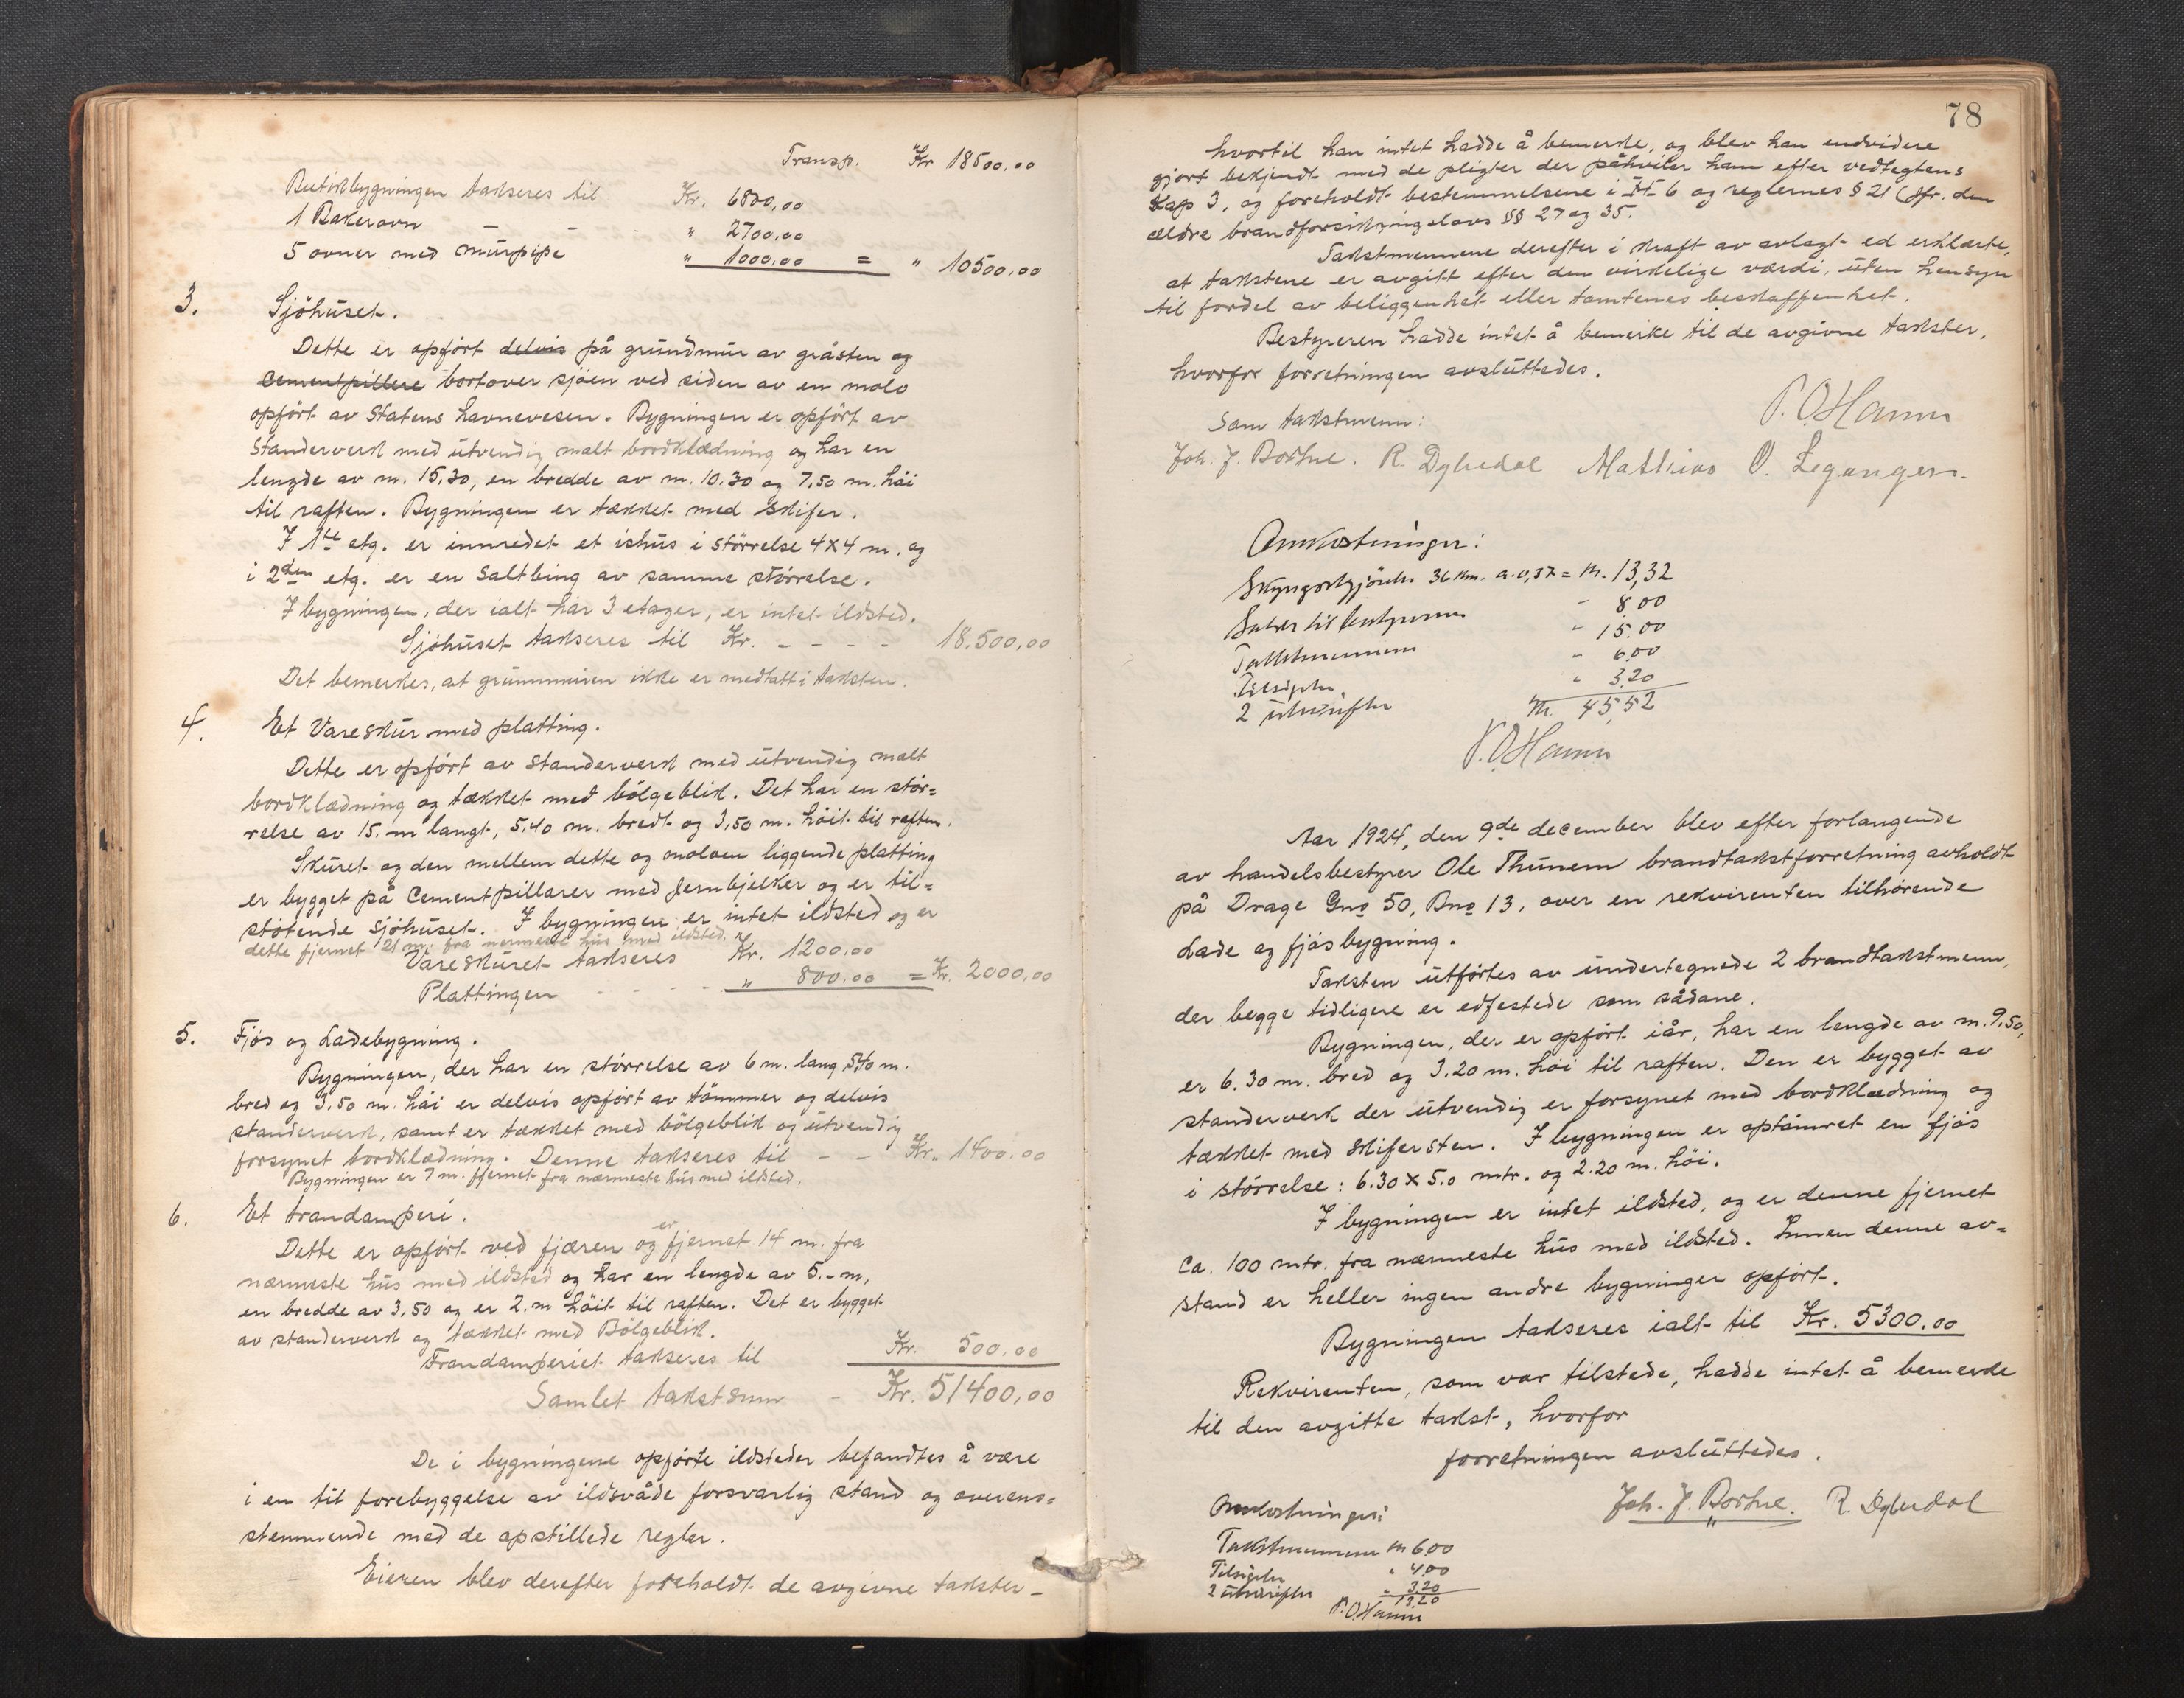 Transp. Kr 18500,00
Butikbygningen takseres til Kr. 6800,00
1 Bakerovn " 2700,00
5 ovner med murpipe " 1000,00 = " 10500,00
3. Sjöhuset.
Dette er opfört delvis på grundmur av gråsten og
Cementpillere bortover sjöen ved siden av en molo
opfört av Statens havnevesen. Bygningen er opfört av
Standerverk med utvendig malt bordklædning og har en
lengde av m. 15,30, en bredde av m. 10.30 og 7,50 m. höi
til raften. Bygningen er tækket med skifer.
I 1ste etg. er innredet et ishus i störrelse 4x4 m. og
i 2den etg. er en Saltbing av samme störrelse.
I bygningen, der ialt har 3 etager, er intet ildsted.
Sjöhuset takseres til Kr. - - - - 18.500,00
Det bemerkes, at grunnmuren ikke er medtatt i taksten.
4. Et Vareskur med platting.
Dette er opfört av Standerverk med utvendig malt
bordklædning og tækket med bölgeblik. Det har en stör=
relse av 15.m langt, 5,40 m. bredt og 3,50 m. höit til raften.
Skuret og den mellem dette og moloen liggende platting
er bygget på Cementpillarer med Jernbjelker og er til=
stötende Sjöhuset. I bygningen er intet ildsted og er
dette fjernet 21 m. fra nærmeste hus med ildsted.
Vareskuret takseres Kr. 1200,00
Plattingen - - - - " 800,00 = Kr. 2000,00
5. Fjös og Ladebygning.
Bygningen, der har en störrelse av 6 m. lang 5,40 m.
bred og 3.50 m. höi er delvis opfört av tömmer og delvis
standerverk, samt er tækket med bölgeblik og utvendig
forsynet bordklædning. Denne takseres til - - Kr. 1400.00
Bygningen er 7 m. fjernet fra nærmeste hus med ildsted.
6. Et trandamperi.
Dette er opfört ved fjæren og er fjernet 14 m. fra
nærmeste hus med ildsted og har en lengde av 5.- m,
en bredde av 3,50 og er 2. m höit til raften. Det er bygget
av standerverk og tækket med Bölgeblik.
Trandamperiet takseres til Kr. 500,00
Samlet takstsum - Kr. 51400,00
De i bygningene opförte ildsteder befandtes å være
i en til forebyggelse av ildsvåde forsvarlig stand og overens=
stemmende med de opstillede regler.
Eieren blev derefter foreholdt de avgivne takster -
78
hvortil han intet hadde å bemerke, og blev han endvidere
gjort bekjendt med de pligter der påhviler ham efter vedtegtens
Kap 3, og foreholdt bestemmelsene i § 6 og reglernes § 21 (jfr. den
ældre brandforsikringslovs §§ 27 og 35.
Takstmennene derefter i kraft av avlagt ed erklærte,
at takstene er avgitt efter den virkelige værdi, uten hensyn
til fordel av beliggenhet eller tomtenes beskaffenhet.
Bestyreren hadde intet å bemerke til de avgivne takster,
hvorfor forretningen avsluttedes.
P. O. Hamn
Som takstmenn:
Joh. J. Borhne. R. Dybedal Mathias O. Leganger.
Omkostninger:
Skyssgodtgjörelse 36 km. a. 0,37 = Kr. 13,32
Salær til bestyreren - 8.00
Takstmennene - 15.00
Tilsigelse - 6.00
2 utskrifter " 3.20
Kr. 45,52
P. O. Hamn
Aar 1924, den 9de december blev efter forlangende
av handelsbestyrer Ole Thunem brandtakstforretning avholdt
på Drage Gno 50, Bno 13, over en rekvirenten tilhörende
Lade og fjösbygning.
Taksten utförtes av undertegnede 2 brandtakstmenn,
der begge tidligere er edfestede som sådane.
Bygningen, der er opfört iår, har en lengde av m. 9,50,
er 6.30 m. bred og 3.20 m. höi til raften. Den er bygget av
standerverk der utvendig er forsynet med bordklædning og
tækket med skifersten. I bygningen er optömret en fjös
i störrelse: 6.30 x 5.0 mtr. og 2.20 m. höi.
I bygningen er intet ildsted, og er denne fjernet
ca. 100 mtr. fra nærmeste hus med ildsted. Innen denne av=
stand er heller ingen andre bygninger opfört.
Bygningen takseres ialt til Kr. 5300.00
Rekvirenten, som var tilstede, hadde intet å bemerke
til den avgitte takst, hvorfor
forretningen avsluttedes.
Joh. J. Borhne. R. Dybedal
Omkostninger:
Takstmennene Kr 6,00
Tilsigelse " 4,00
2 utskrifter " 3,20
13,20
P. O. Hamn